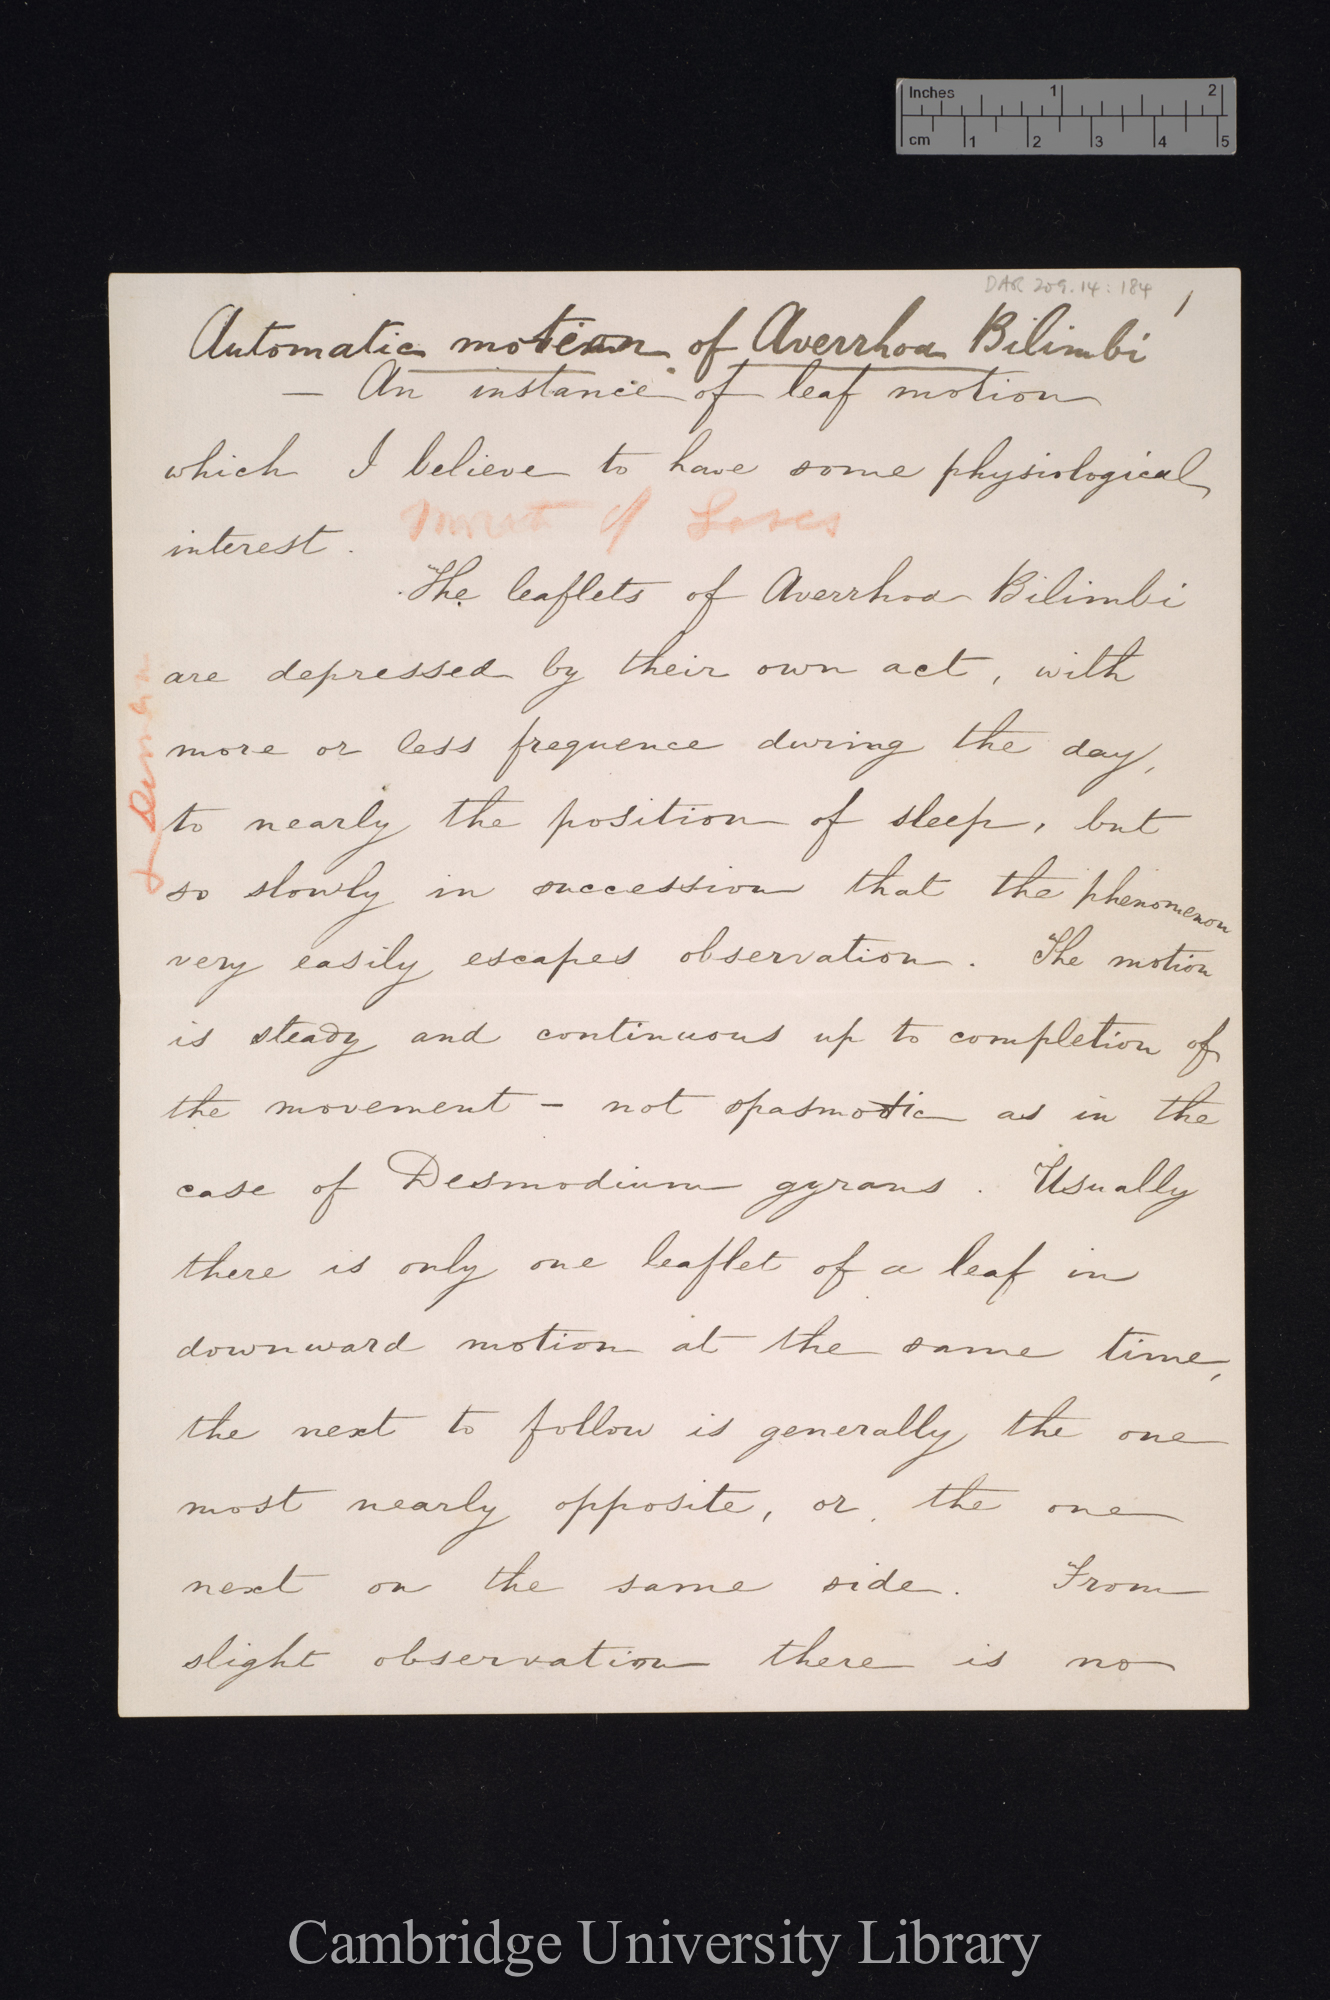 Inches 1 2
cm 1 2 3 4 5
DAR 209.14: 184
1
Automatic motion of Averrhoa Bilimbi
— An instance of leaf motion
which I believe to have some physiological
interest.
of
The leaflets of Averrhoa Bilimbi
are depressed by their own act, with
more or less frequence during the day,
to nearly the position of sleep, but
so slowly in succession that the phenomenon
very easily escapes observation. The motion
is steady and continuous up to completion of
the movement – not spasmodic as in the
case of Desmodium gyrans. Usually
there is only one leaflet of a leaf in
downward motion at the same time,
the next to follow is generally the one
most nearly opposite, or the one
next on the same side. From
slight observation there is no
Cambridge University Library